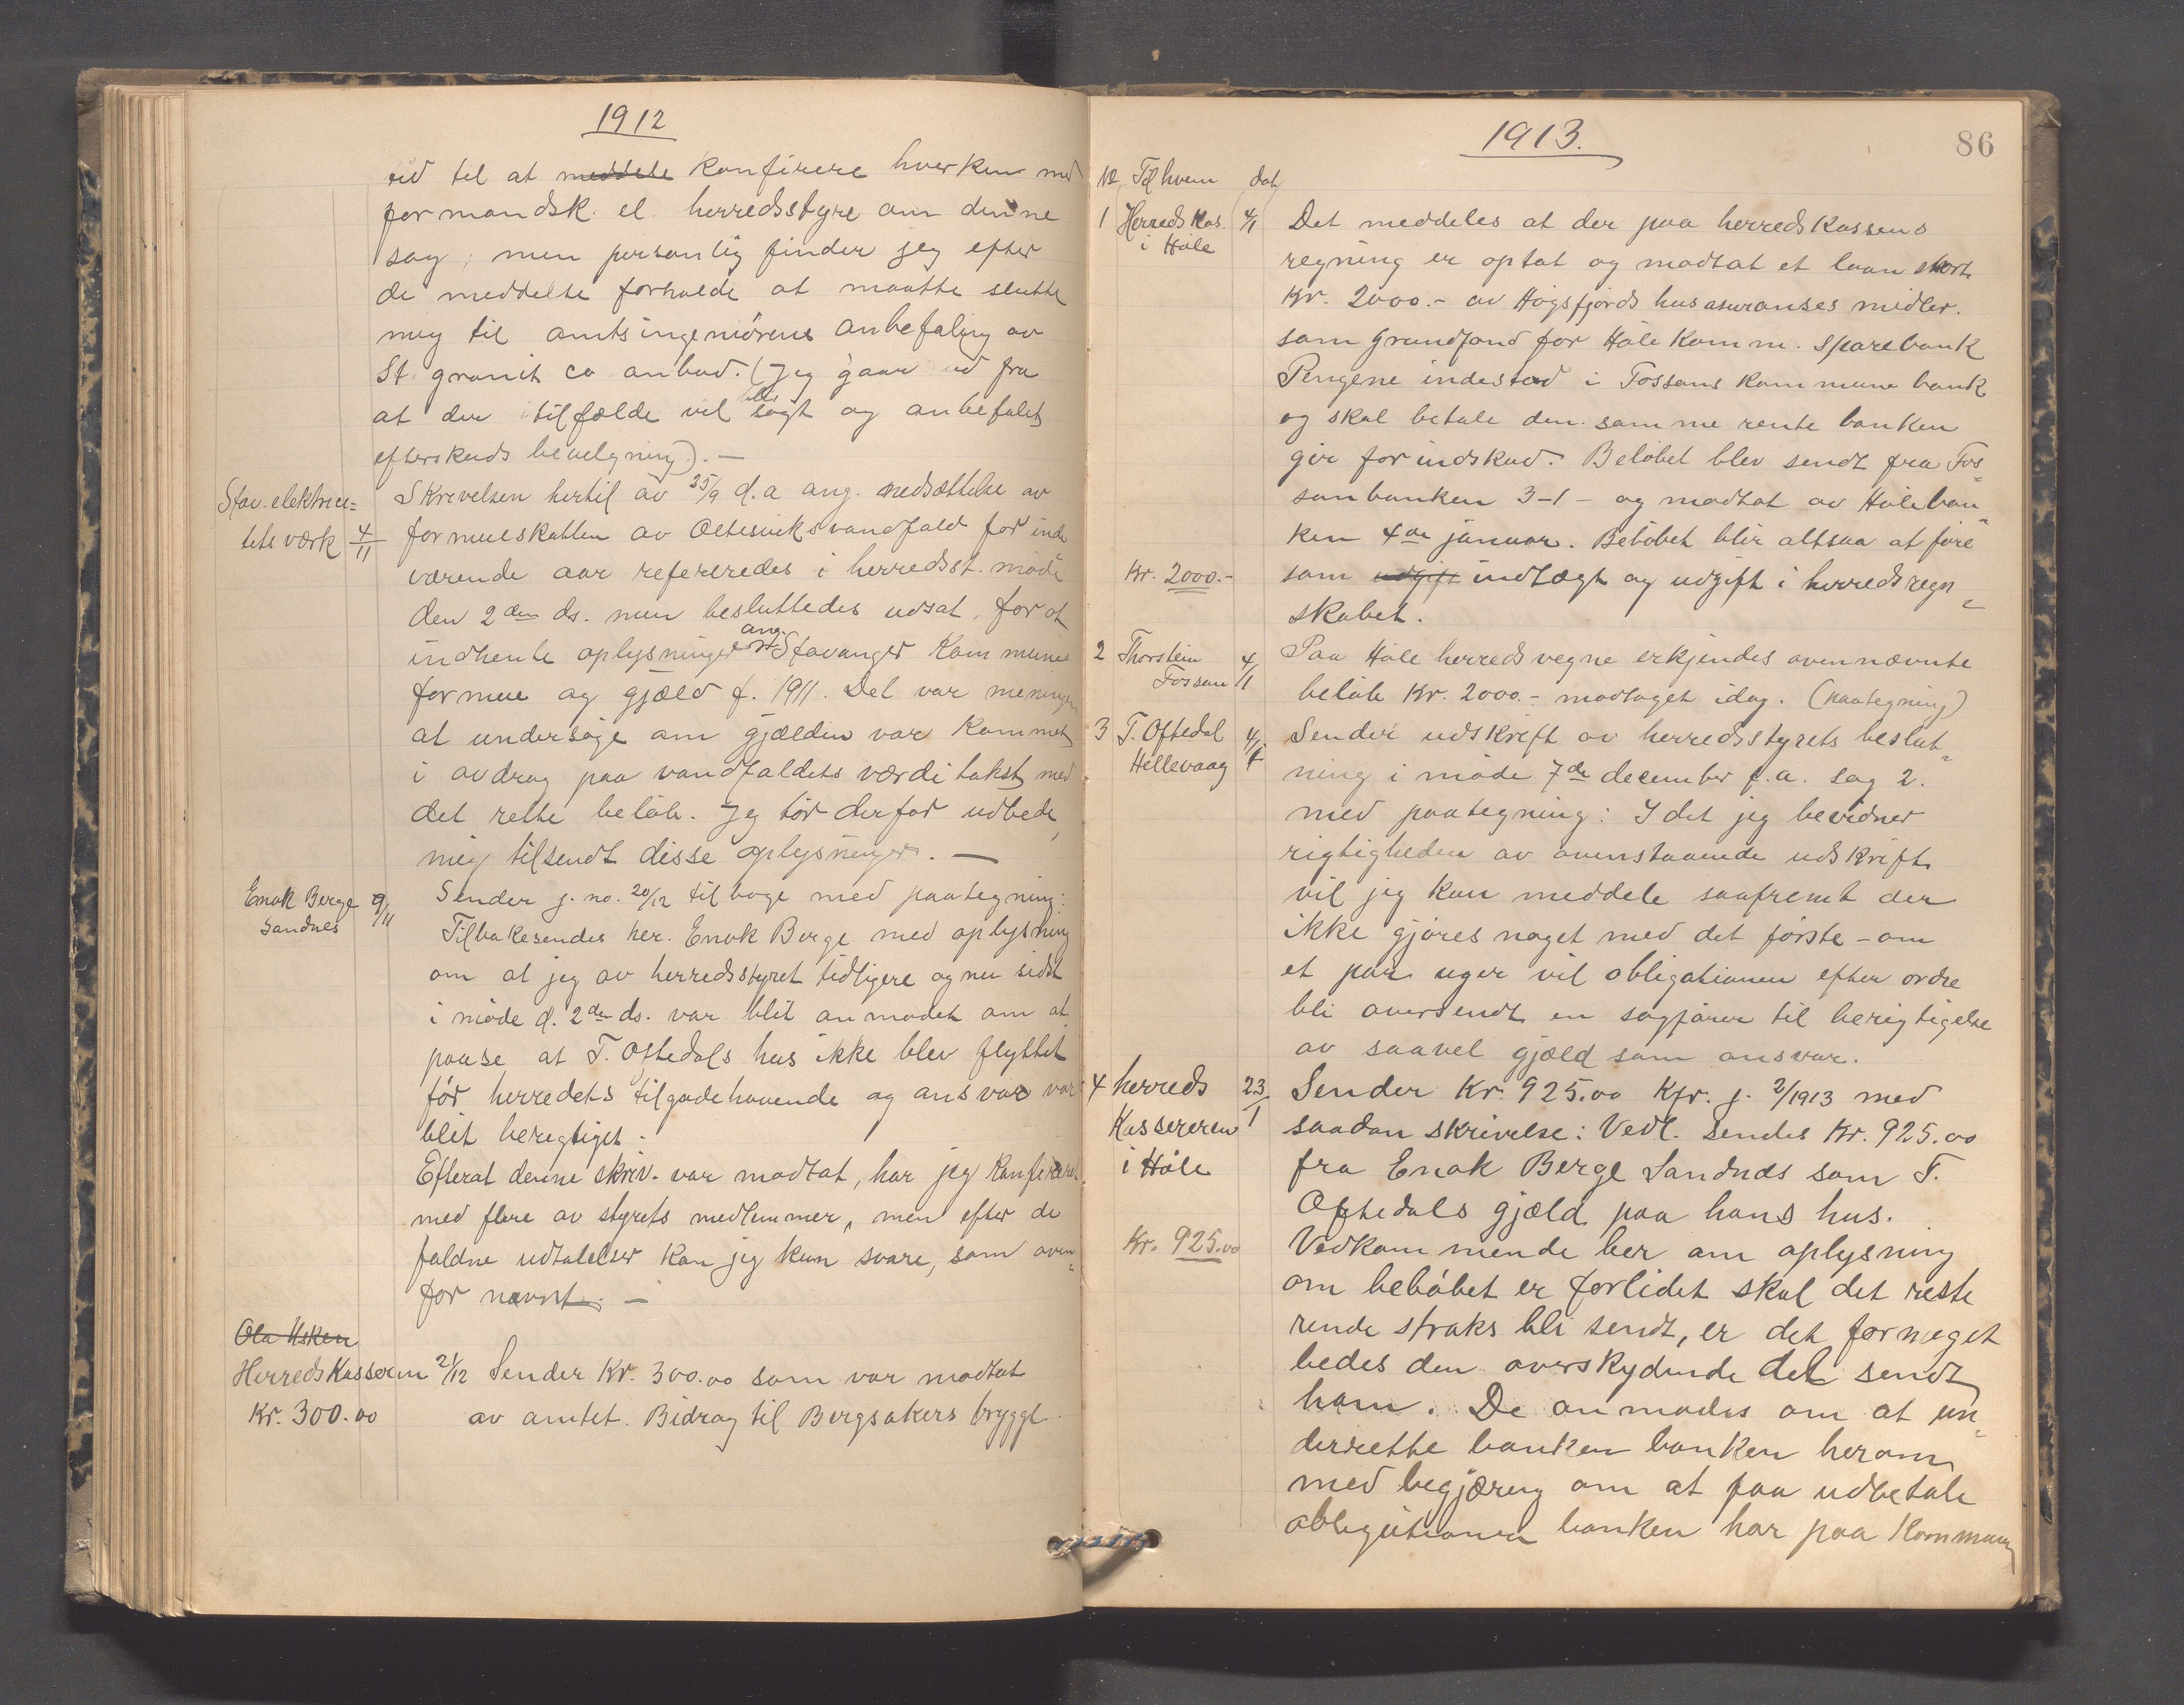 1912
tid til at meddele konferere hverken med
formandsk. el. herredsstyre om denne
sag; men personlig finder jeg efter
de meddelte forholde at maatte slutte
mig til amtsingeniørens anbefaling av
St. granit co anbud. (Jeg gaar ud fra
at der i tilfælde vil bli søgt og anbefalet
efterskuds bevilgning). —
Stav. elektrici=
tets værk 4/11
Skrivelsen hertil av 25/9 d.a ang. nedsættelse av
formueskatten av Oltesviks vandfald for inde
værende aar refereredes i herredsst. møde
den 2den ds. men besluttedes udsat, for at
indhente oplysninger ang. Stavanger kommunes
formue og gjæld f. 1911. Det var meningen
at undersøge om gjælden var kommet
i avdrag paa vandfaldets værdi takst med
det rette beløb. Jeg tør derfor udbede
mig tilsendt disse oplysninger. —
Enok Berge 9/11
Sandnes
Sender j. no. 20/12 tilbage med paategning:
Tilbakesendes her. Enok Berge med oplysning
om at jeg av herredsstyret tidligere og nu sidst
i møde d. 2den ds. var blit anmodet om at
paase at T. Oftedals hus ikke blev flyttet
før herredets tilgodehavende og ansvar var
blit berigtiget.
Efterat denne skriv. var modtat, har jeg konfereret
med flere av styrets medlemmer, men efter de
faldne udtalelser kan jeg kun svare, som oven=
for nævnt. —
Ola Usken
Herredskasseren 21/12 Sender Kr. 300.00 som var modtat
Kr. 300.00 av amtet. Bidrag til Bergsakers brygge.
1913.
86
No Til hvem dat
1 Herredskas. 4/1
i Høle
Det meddeles at der paa herredskassens
regning er optat og modtat et laan stort
Kr. 2000.- av Høgsfjords husasuranses midler.
som grundfond for Høle komm. sparebank
Pengene indestod i Fossans kommune bank
og skal betale den samme rente banken
gir for indskud. Beløbet blev sendt fra Fos=
sanbanken 3-1- og modtat av Høleban=
ken 4de januar. Beløbet blir altsaa at føre
Kr. 2000.-
som udgift indtægt og udgift i herredsregn=
skabet.
2 Thorstein 4/1
Fossan
Paa Høle herreds vegne erkjendes ovennævnte
beløb Kr. 2000.- modtaget idag. (paategning)
3 T. Oftedal 4/1
Hillevaag
Sender udskrift av herredsstyrets beslut=
ning i møde 7de december f.a. sag 2.
med paategning: I det jeg bevidner
rigtigheden av ovenstaaende udskrift
vil jeg kun meddele saafremt der
ikke gjøres noget med det første - om
et par uger vil obligationen efter ordre
bli oversendt en sagfører til berigtigelse
av saavel gjæld som ansvar.
4 herreds 23/1
Kassereren
i Høle
Kr. 925.00
Sender Kr. 925.00 Kfr. j. 2/1913 med
saadan skrivelse: Vedl. sendes Kr. 925.00
fra Enok Berge Sandnes som T.
Oftedals gjæld paa hans hus.
Vedkommende ber om oplysning
om beløbet er forlidet skal det reste
rende straks bli sendt, er det formeget
bedes den overskydende del sendt
ham. De anmodes om at un=
derrette banken banken herom
med begjæring om at faa udbetale
obligationen banken har paa kommunen